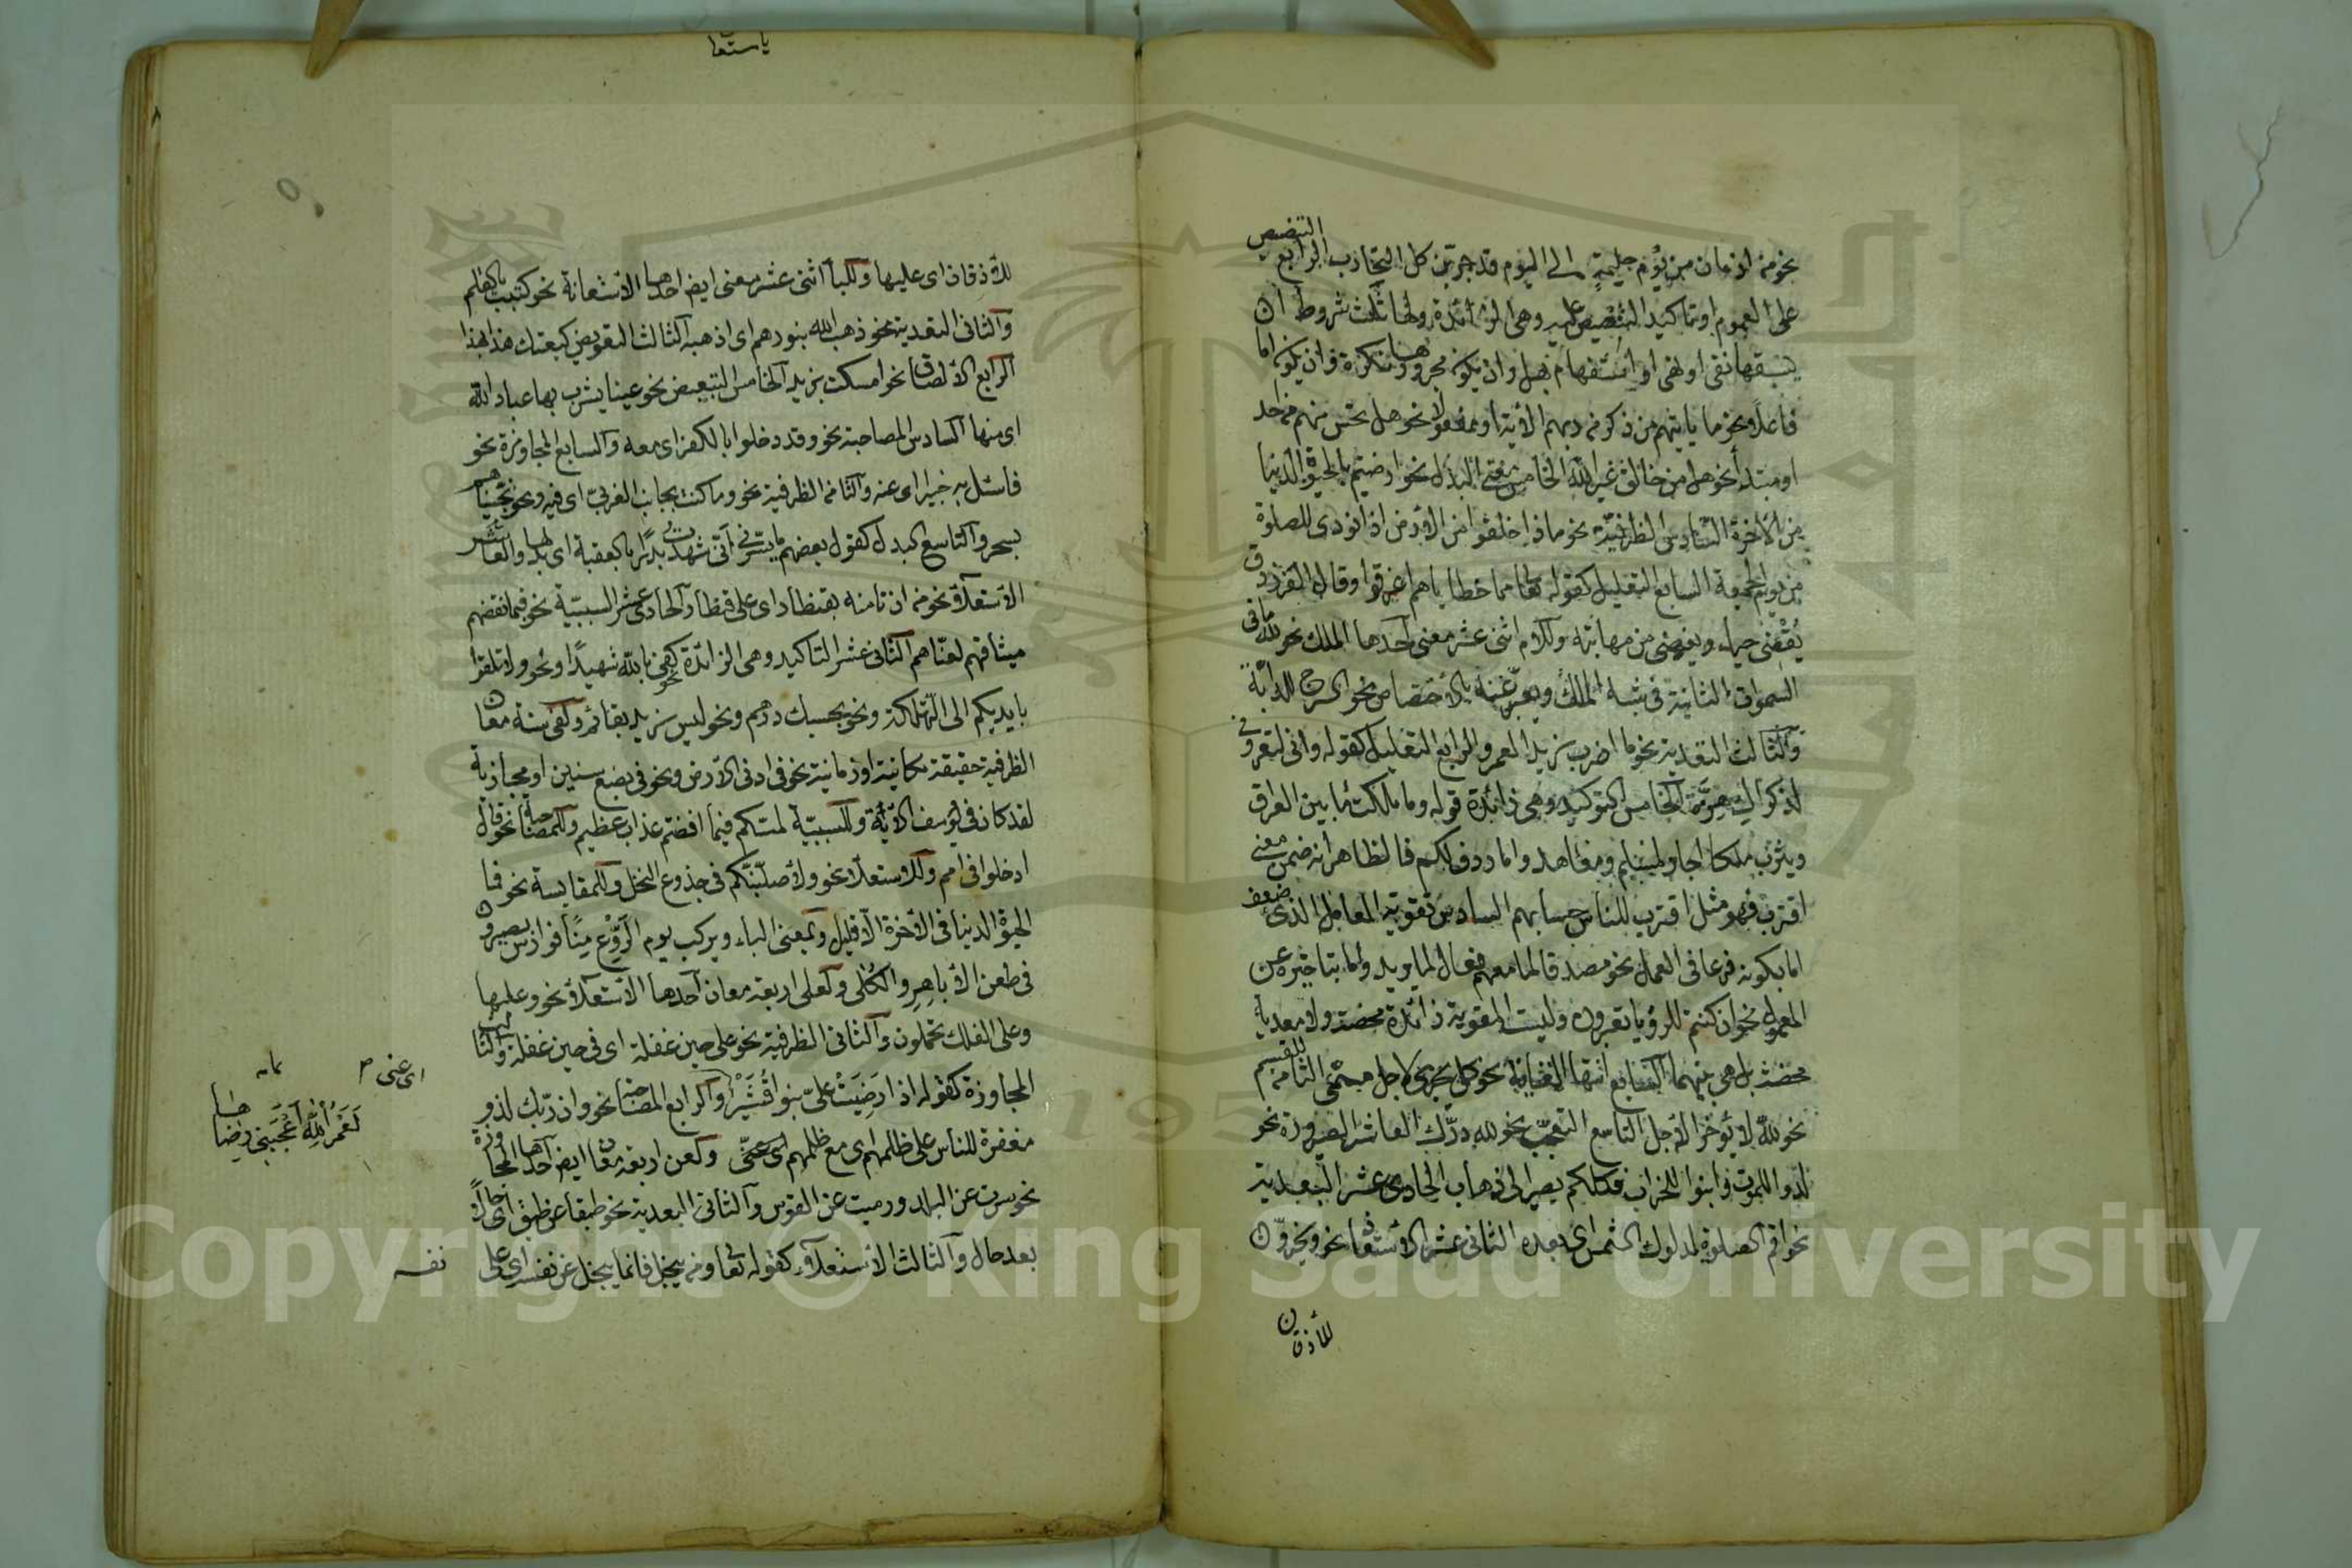 التنصيص
نحو من ازمان من يوم حليمة الى اليوم قد جربن كل التجارب الرابع
على العموم او تاكيد التنصيص عليه وهى الزائدة ولها ثلث شروط ان
يسبقها نفى او نهى او استفهام بهل وان يكون مجرورها نكرة وان يكون اما
فاعلا نحو ما ياتيهم من ذكر من ربهم الآية او مفعولا نحو هل تحس منهم من احد
او مبتدأ نحو هل من خالق غير الله الخامس معنى البدل نحو ارضيتم بالحيوة الدنيا
من الآخرة السادس الظرفية نحو ماذا خلقوا من الارض اذا نودى للصلوة
من يوم الجمعة السابع التعليل كقوله تعالى مما خطاياهم اغرقوا وقال الفرزدق
يغضى حياء ويغضى من مهابته وللام اثنى عشر معنى احدها الملك نحو لله ما فى
السموات الثانية فى شبه الملك ويعبر عنه بالاختصاص نحو السرج للدابة
والثالث التعدية نحو ما اضرب زيدا لعمرو الرابع التعليل كقوله وانى لتعرونى
لذكراك هزة الخامس التوكيد وهى زائدة قوله وما ملكت ما بين العراق
ويثرب ملكا اجار لمسلم ومعاهد واما ردف لكم فالظاهر انه ضمن معنى
اقترب فهو مثل اقترب للناس حسابهم السادس تقوية العامل الذى ضعف
اما بكونه فرعا فى العمل نحو مصدقا لما معهم فعال لما يريد واما بتاخيره عن
المعمول نحو ان كنتم للرؤيا تعبرون وليست المقوية زائدة محضة ولا معدية
محضة بل هى بينهما السابع انتهاء الغاية نحو كل يجرى لاجل مسمى الثامن القسم
نحو لله لا يؤخر الاجل التاسع التعجب نحو لله درك العاشر الصيرورة نحو
لدوا للموت وابنوا للخراب فكلكم يصير الى ذهاب الحادى عشر البعدية
نحو اقم الصلوة لدلوك الشمس اى بعده الثانى عشر الاستعلا نحو ويخرون
للأذقان
للأذقان اى عليها وللباء اثنى عشر معنى ايضا احدها الاستعانة نحو كتبت بالقلم
والثانى التعدية نحو ذهب الله بنورهم اى اذهبه الثالث التعويض كبعتك هذا بهذا
الرابع الالصاق نحو امسكت بزيد الخامس التبعيض نحو عينا يشرب بها عباد الله
اى منها السادس المصاحبة نحو وقد دخلوا بالكفر اى معه والسابع المجاوزة نحو
فاسئل به خبيرا اى عنه والثامن الظرفية نحو وما كنت بجانب الغربى اى فيه ونحو نجيناهم
بسحر والتاسع البدل كقول بعضهم ما يسرنى انى شهدت بدرا بالعقبة اى بدلها والعاشر
الاستعلاء نحو من ان تامنه بقنطار اى على قنطار والحادى عشر السببية نحو فبما نقضهم
ميثاقهم لعناهم الثانى عشر التاكيد وهى الزائدة نحو كفى بالله شهيدا ونحو ولا تلقوا
بايديكم الى التهلكة ونحو بحسبك درهم ونحو ليس زيد بقائم ولفى ستة معان
الظرفية حقيقة مكانية او زمانية نحو فى ادنى الارض ونحو فى بضع سنين او مجازية
لقد كان فى يوسف الآية وللسببية لمسكم فيما افضتم عذاب عظيم وللمصاحبة نحو قال
ادخلوا فى امم وللاستعلا نحو ولاصلبنكم فى جذوع النخل وللمقايسة نحو فما
الحيوة الدنيا فى الآخرة الا قليل وبمعنى الباء ويركب يوم الروع منا فوارس بصيرون
فى طعن الاباهر والكلى ولعلى اربعة معان احدها الاستعلاء نحو وعليها
وعلى الفلك تحملون والثانى الظرفية نحو على حين غفلة اى فى حين غفلة والثالث
المجاوزة كقوله اذا رضيت على بنو قشير والرابع المصاحبة نحو وان ربك لذو
مغفرة للناس على ظلمهم اى مع ظلمهم اى عنى ولعن اربعة معان ايضا احدها المجاوزة
نحو سرت عن البلد ورميت عن القوس والثانى البعدية نحو طبقا عن طبق اى حالا
بعد حال والثالث الاستعلاء كقوله تعالى ومن يبخل فانما يبخل عن نفسه اى على نفسه
اى عنى م
لعمر الله اعجبنى رضاها